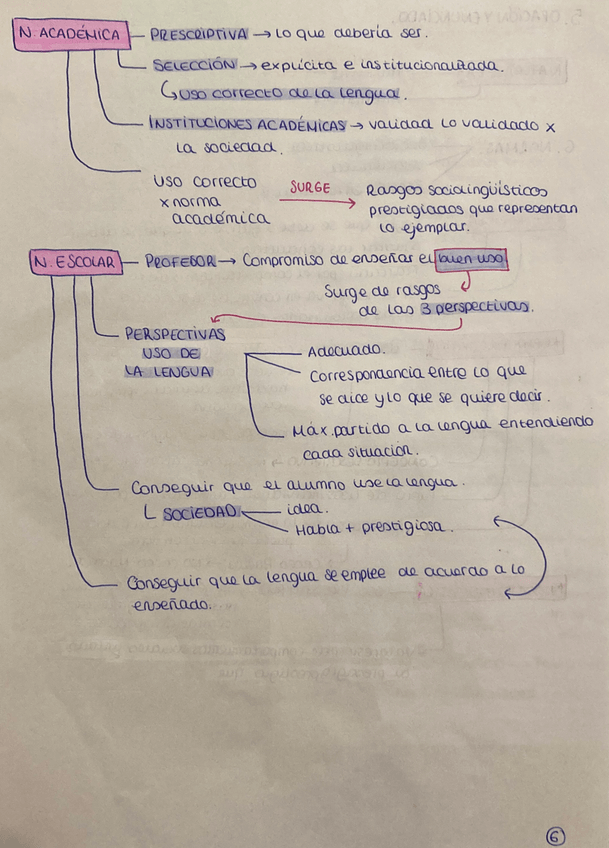 N. ACADÉMICA
PRESCRIPTIVA → lo que debería ser.
SELECCIÓN → explícita e institucionalizada.
↳ uso correcto de la lengua.
INSTITUCIONES ACADÉMICAS → validad lo validado x
la sociedad.
uso correcto
x norma
académica
SURGE
Rasgos sociolingüísticos
prestigiados que representan
lo ejemplar.
N. ESCOLAR
PROFESOR → Compromiso de enseñar el buen uso
Surge de rasgos
de las 3 perspectivas.
PERSPECTIVAS
USO DE
LA LENGUA
Adecuado.
Correspondencia entre lo que
se dice y lo que se quiere decir.
Máx. partido a la lengua entendiendo
cada situación.
Conseguir que el alumno use la lengua.
SOCIEDAD
idea.
Habla + prestigiosa.
Conseguir que la lengua se emplee de acuerdo a lo
enseñado.
6